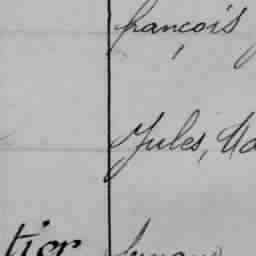 françois
Jules, Ma
tier